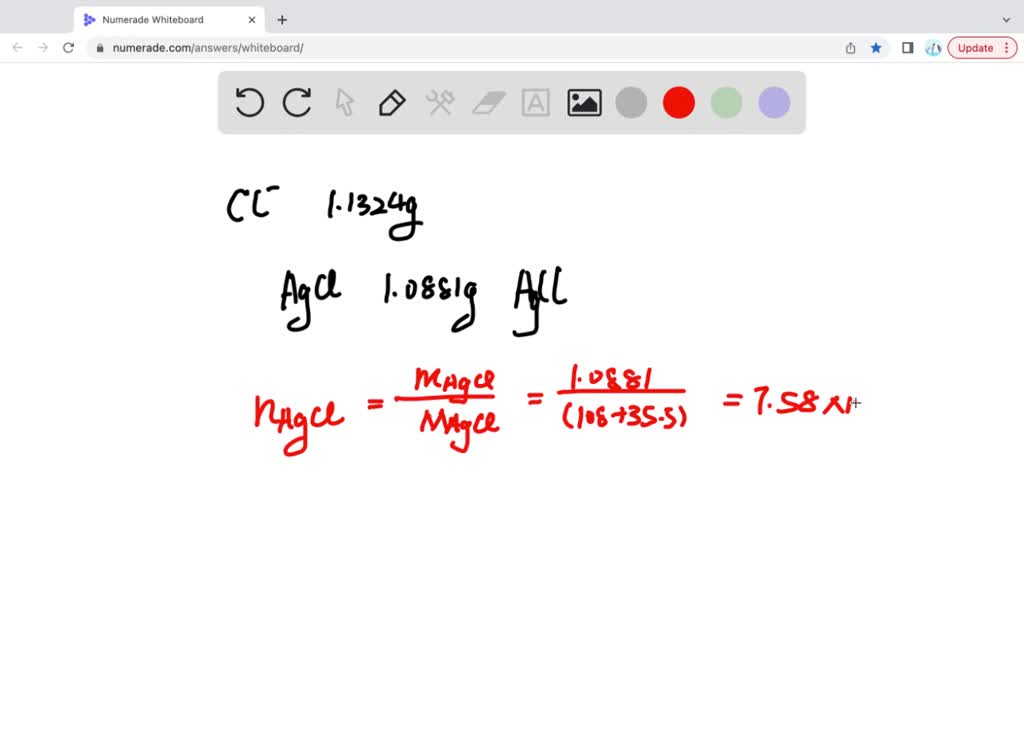 Numerade Whiteboard
numerade.com/answers/whiteboard/
Update
A
Cl⁻ 1.1324g
AgCl 1.0881g AgCl
nAgCl = mAgCl / MAgCl = 1.0881 / (108+35.5) = 7.58 x1